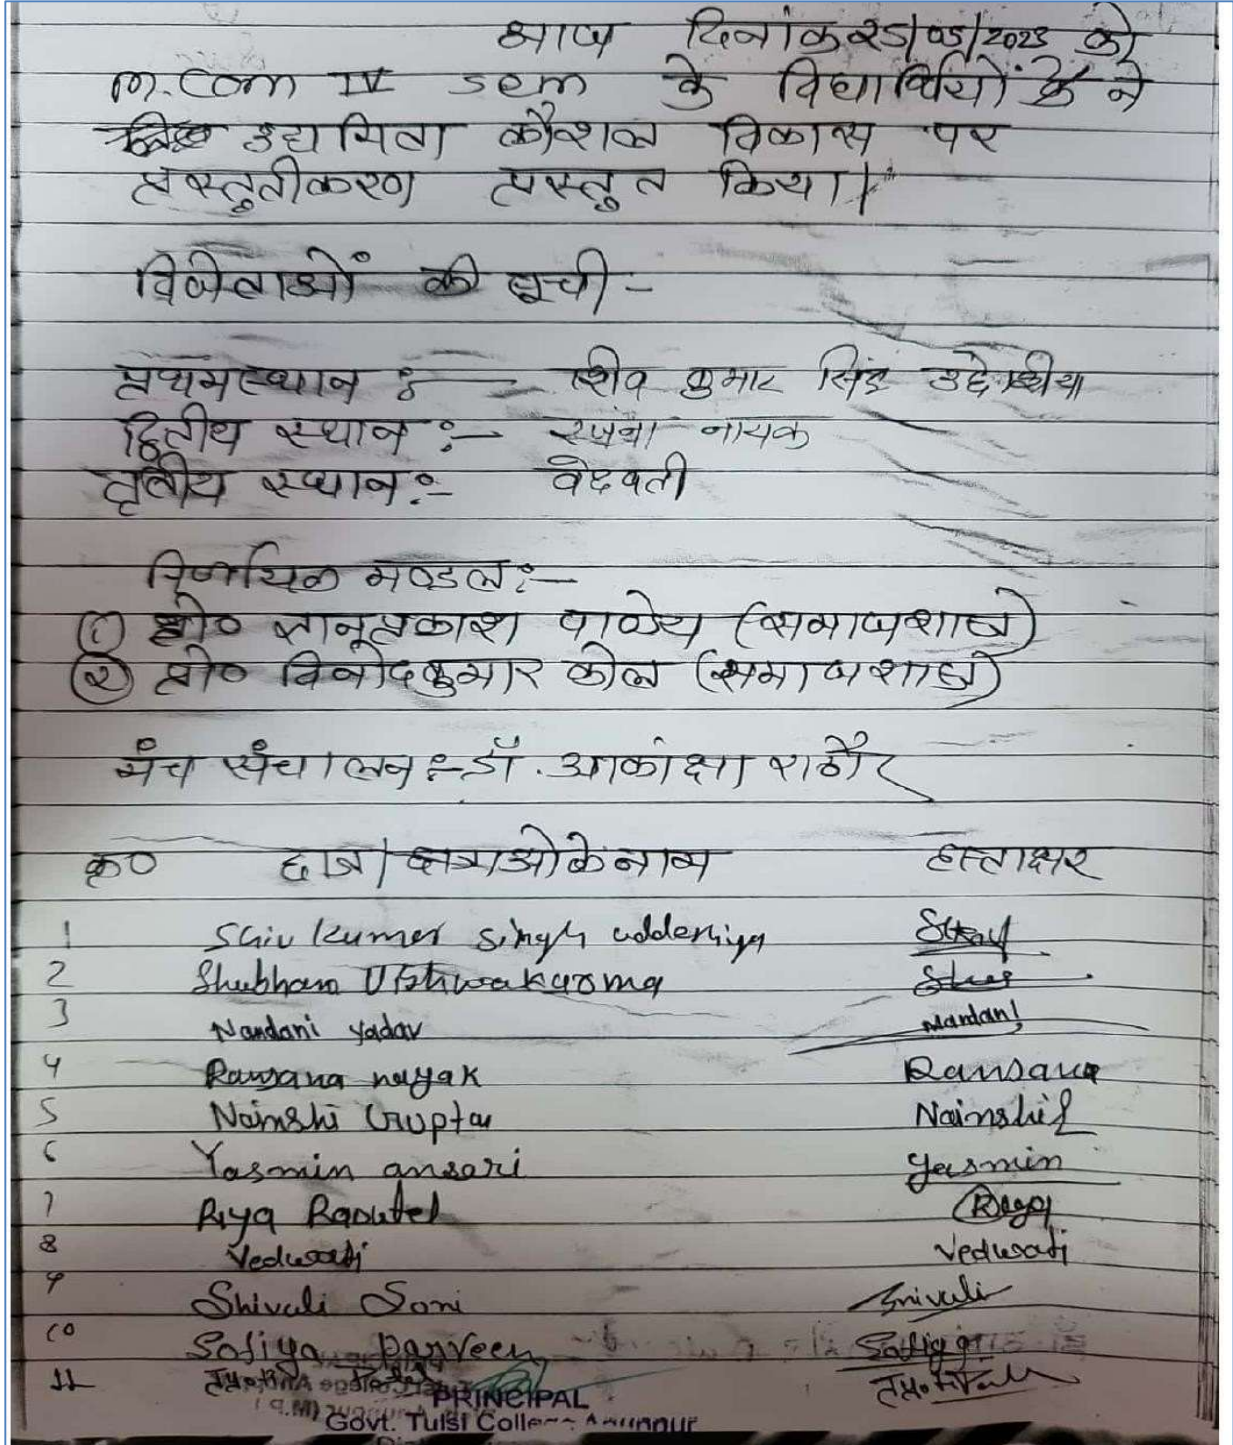 आज दिनांक 25/05/2023 को
M.Com IV sem के विधार्थियों ने
उद्यमिता कौशल विकास पर
प्रस्तुतीकरण प्रस्तुत किया।
विजेताओं की सूची -
प्रथम स्थान :- शिव कुमार सिंह उद्देश्रीया
द्वितीय स्थान :- रंजना नायक
तृतीय स्थान :- वेदवती
निर्णायक मण्डल :-
(1) प्रो० ज्ञानप्रकाश पाण्डेय (समाजशास्त्र)
(2) प्रो० विनोद कुमार कोल (समाजशास्त्र)
मंच संचालन :- डॉ. आकांक्षा राठौर
क्र० छात्र/छात्राओ के नाम हस्ताक्षर
1 Shiv kumar singh uddeniya
2 Shubham Vishwakarma
3 Nandani yadav Nandani
4 Ranjana nayak Ranjana
5 Nainshi Gupta Nainshi
6 Yasmin ansari Yasmin
7 Riya Rautel Riya
8 Vedwati Vedwati
9 Shivali Soni Shivali
10 Sofiya parveen Sofiya
11
PRINCIPAL
Govt. Tulsi College Anuppur